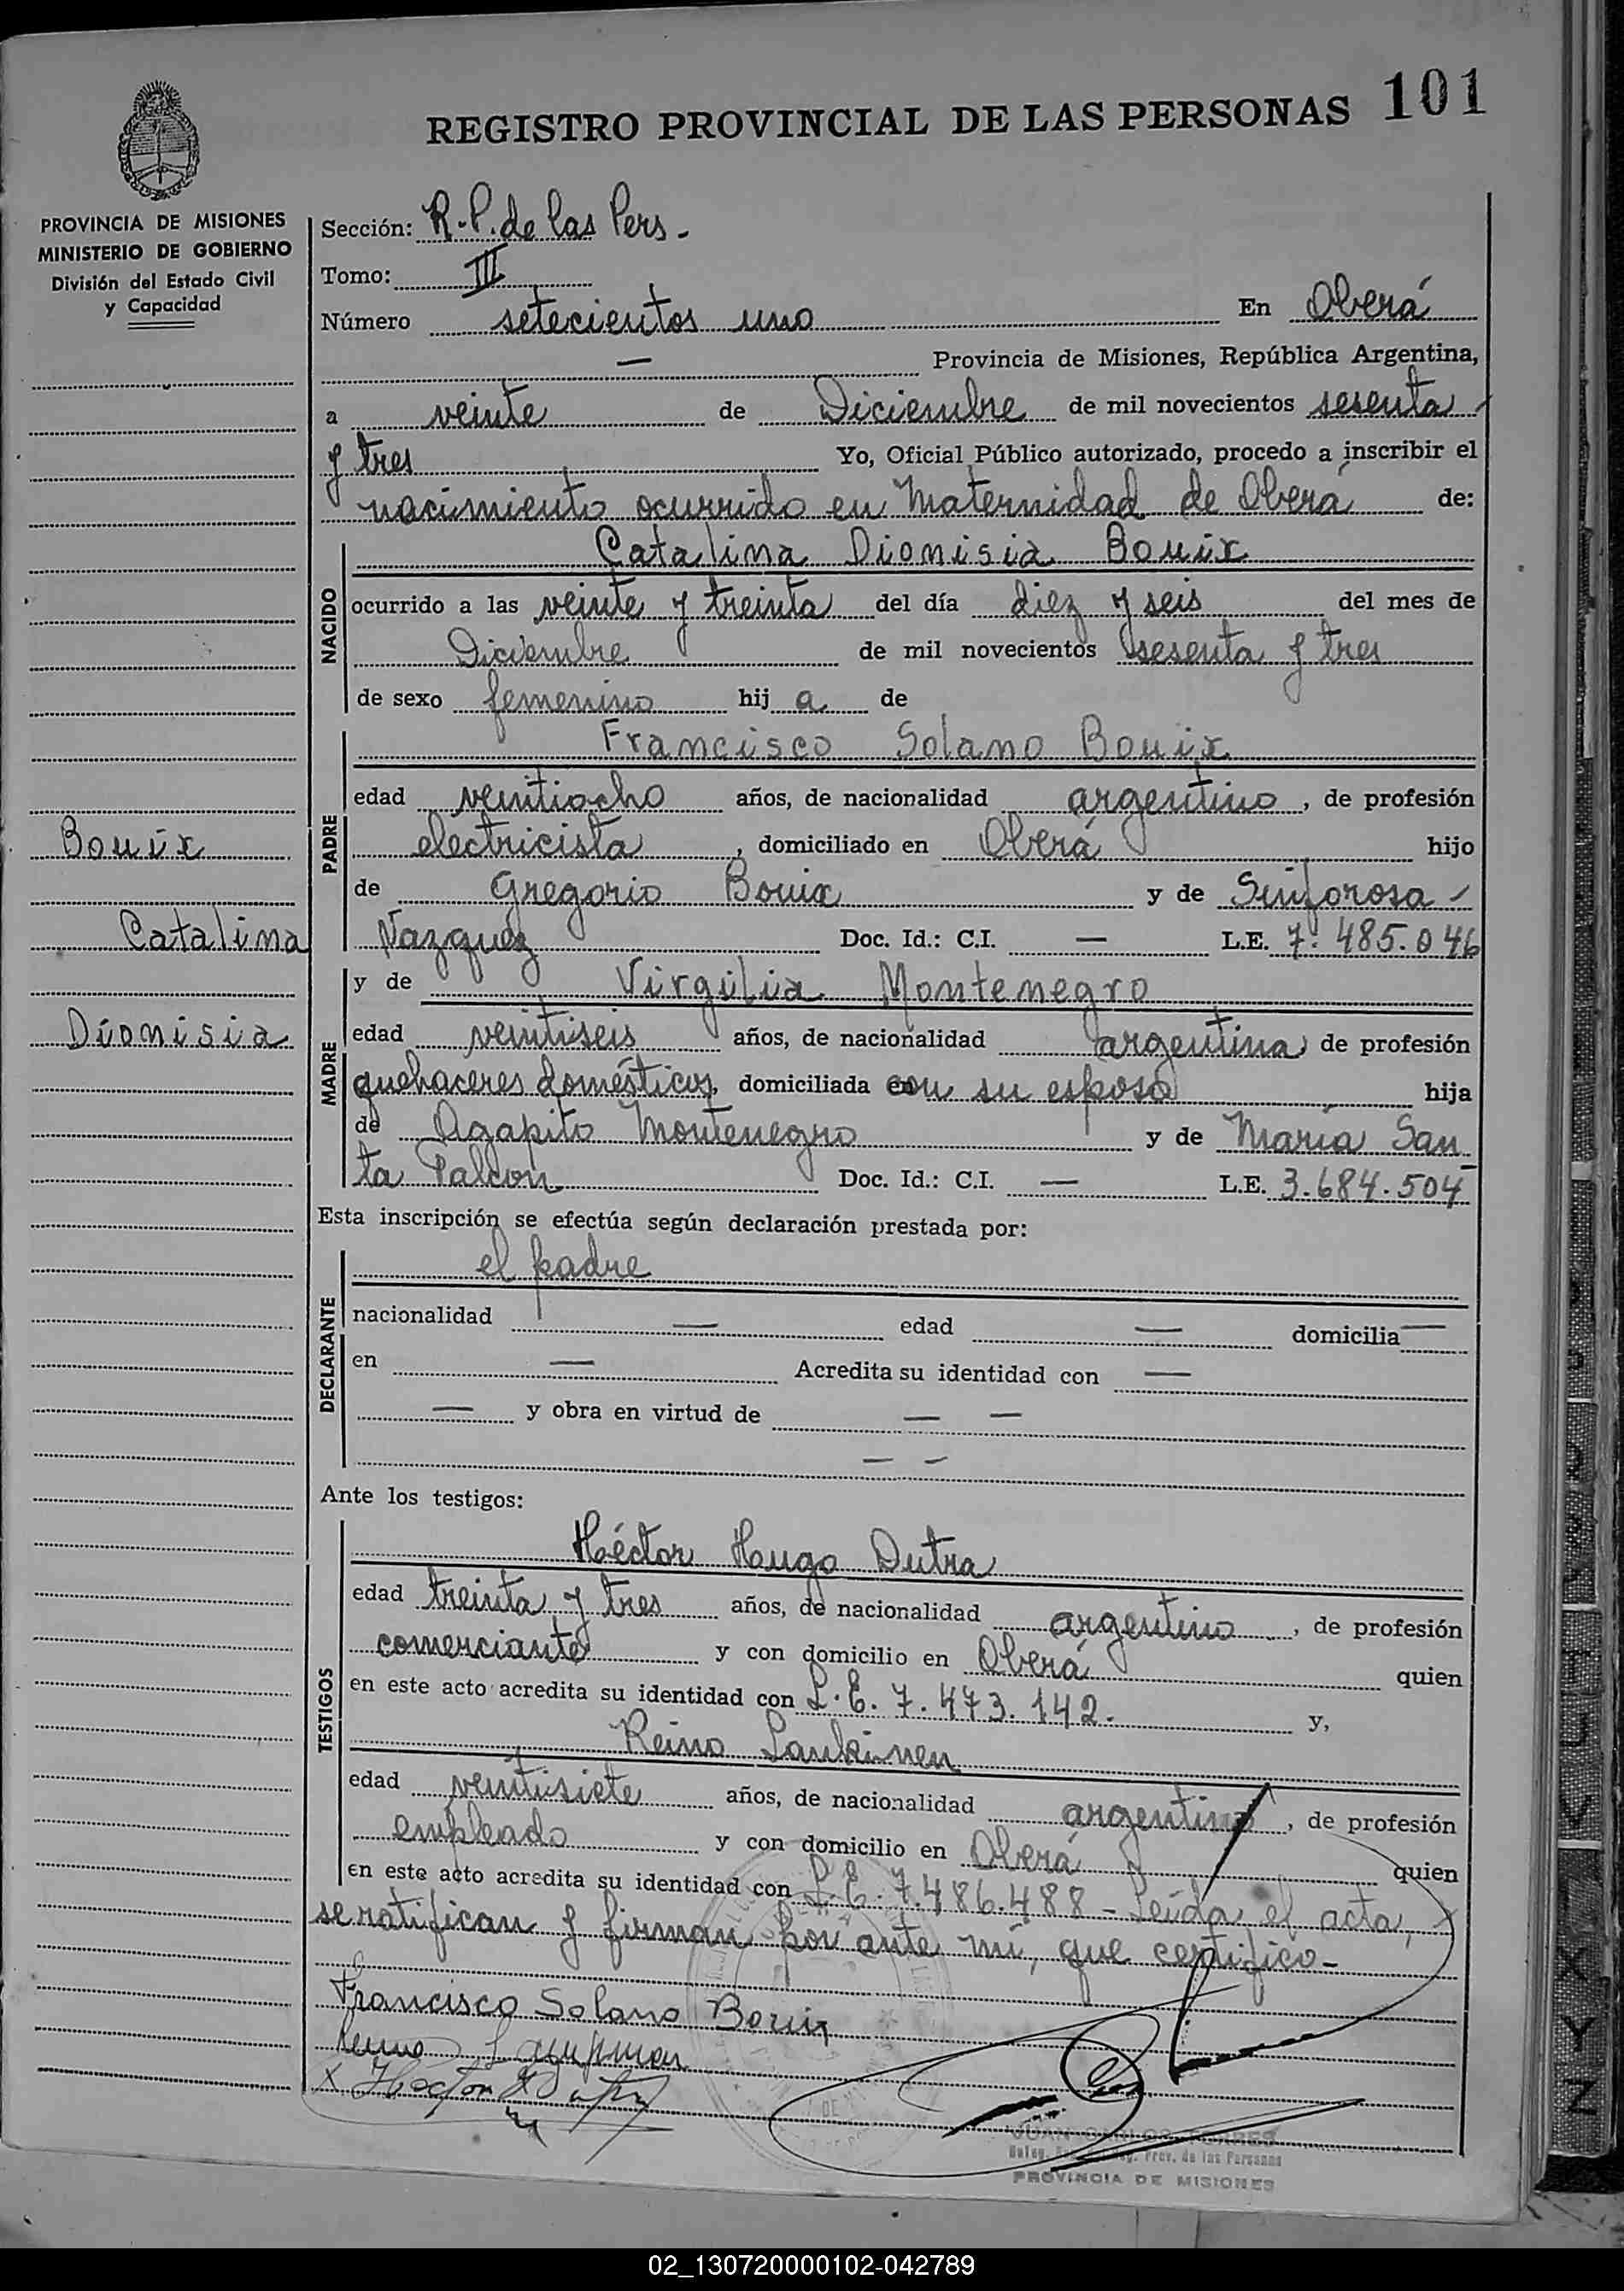 REGISTRO PROVINCIAL DE LAS PERSONAS 101
PROVINCIA DE MISIONES
MINISTERIO DE GOBIERNO
División del Estado Civil
y Capacidad
Sección: R.P. de las Pers.
Tomo: III
Número setecientos uno En Oberá
— Provincia de Misiones, República Argentina,
a veinte de Diciembre de mil novecientos sesenta
y tres Yo, Oficial Público autorizado, procedo a inscribir el
nacimiento ocurrido en Maternidad de Oberá de:
NACIDO
Catalina Dionisia Bouix
ocurrido a las veinte y treinta del día diez y seis del mes de
Diciembre de mil novecientos sesenta y tres
de sexo femenino hij a de
PADRE
Francisco Solano Bouix
edad veintiocho años, de nacionalidad argentino, de profesión
electricista, domiciliado en Oberá hijo
de Gregorio Bouix y de Sinforosa
Vazquez Doc. Id.: C.I. — L.E. 7.485.046
Bouix
Catalina
Dionisia
MADRE
y de Virgilia Montenegro
edad veintiseis años, de nacionalidad argentina, de profesión
quehaceres domésticos, domiciliada con su esposo hija
de Agapito Montenegro y de María San
ta Falcon Doc. Id.: C.I. — L.E. 3.684.504
Esta inscripción se efectúa según declaración prestada por:
DECLARANTE
el padre
nacionalidad — edad — domicilia —
en — Acredita su identidad con —
— y obra en virtud de — —
— —
Ante los testigos:
TESTIGOS
Héctor Hugo Dutra
edad treinta y tres años, de nacionalidad argentino, de profesión
comerciante y con domicilio en Oberá quien
en este acto acredita su identidad con L.E. 7.473.142. y,
Reino Laukinen
edad veintisiete años, de nacionalidad argentino, de profesión
empleado y con domicilio en Oberá quien
en este acto acredita su identidad con L.E. 7.486.488 - Leída el acta,
se ratifican y firman por ante mí, que certifico -
Francisco Solano Bouix
JUAN CARLOS TORRES
Prov. de las Personas
PROVINCIA DE MISIONES
02_130720000102-042789